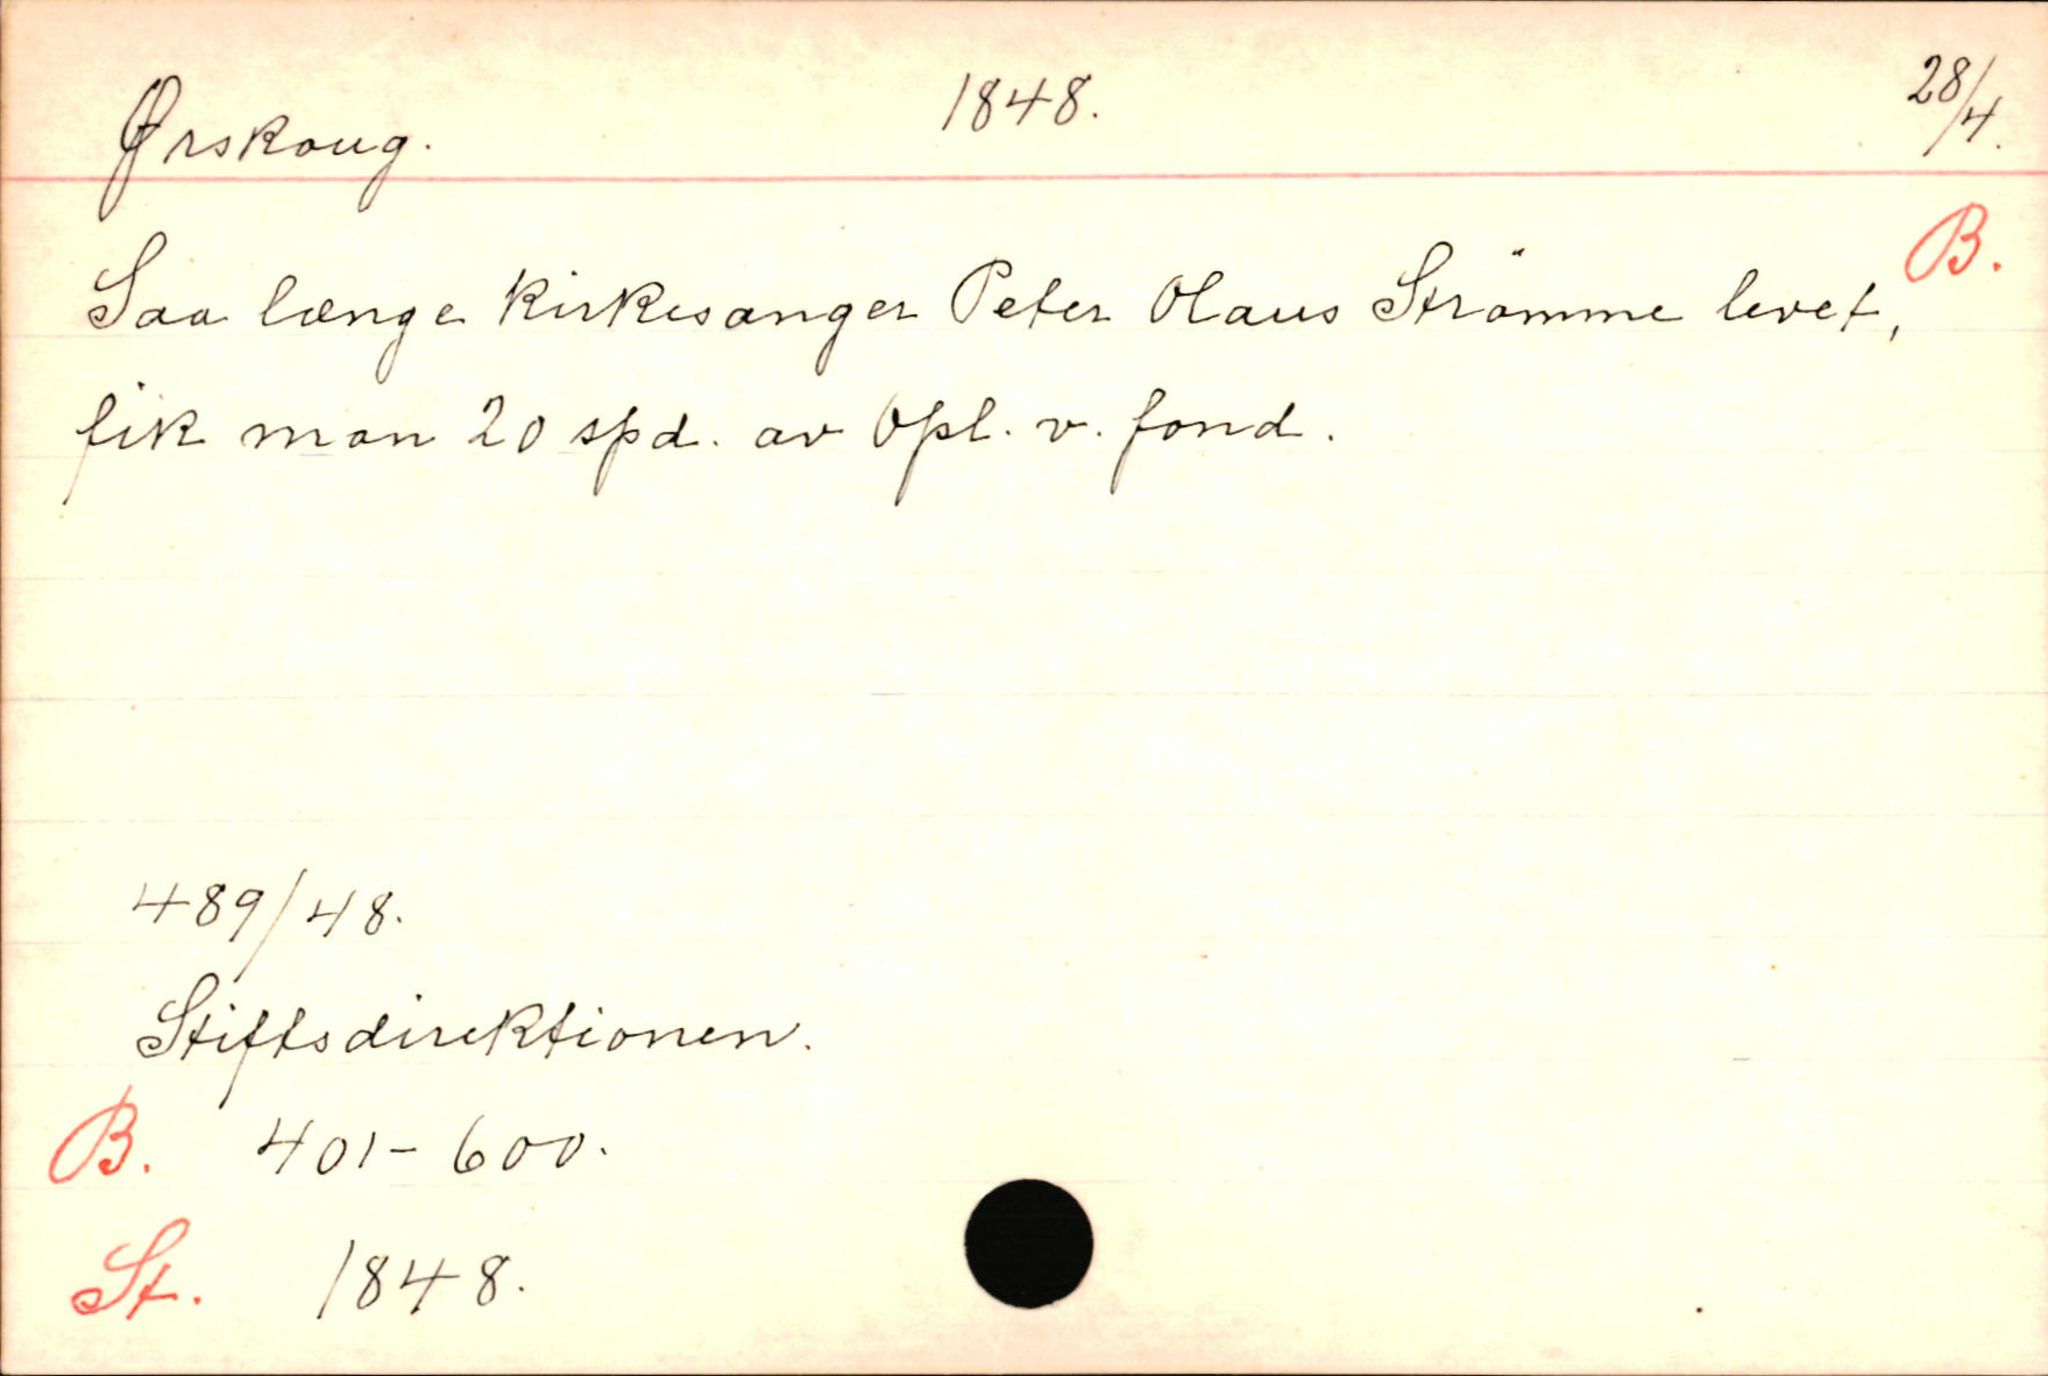 Ørskoug. 1848. 28/4.
B.
Saa længe Kirkesanger Peter Olaus Strömme levet,
fik man 20 spd. av Opl. v. fond.
489/48.
Stiftsdirektionen.
B. 401-600.
St. 1848.